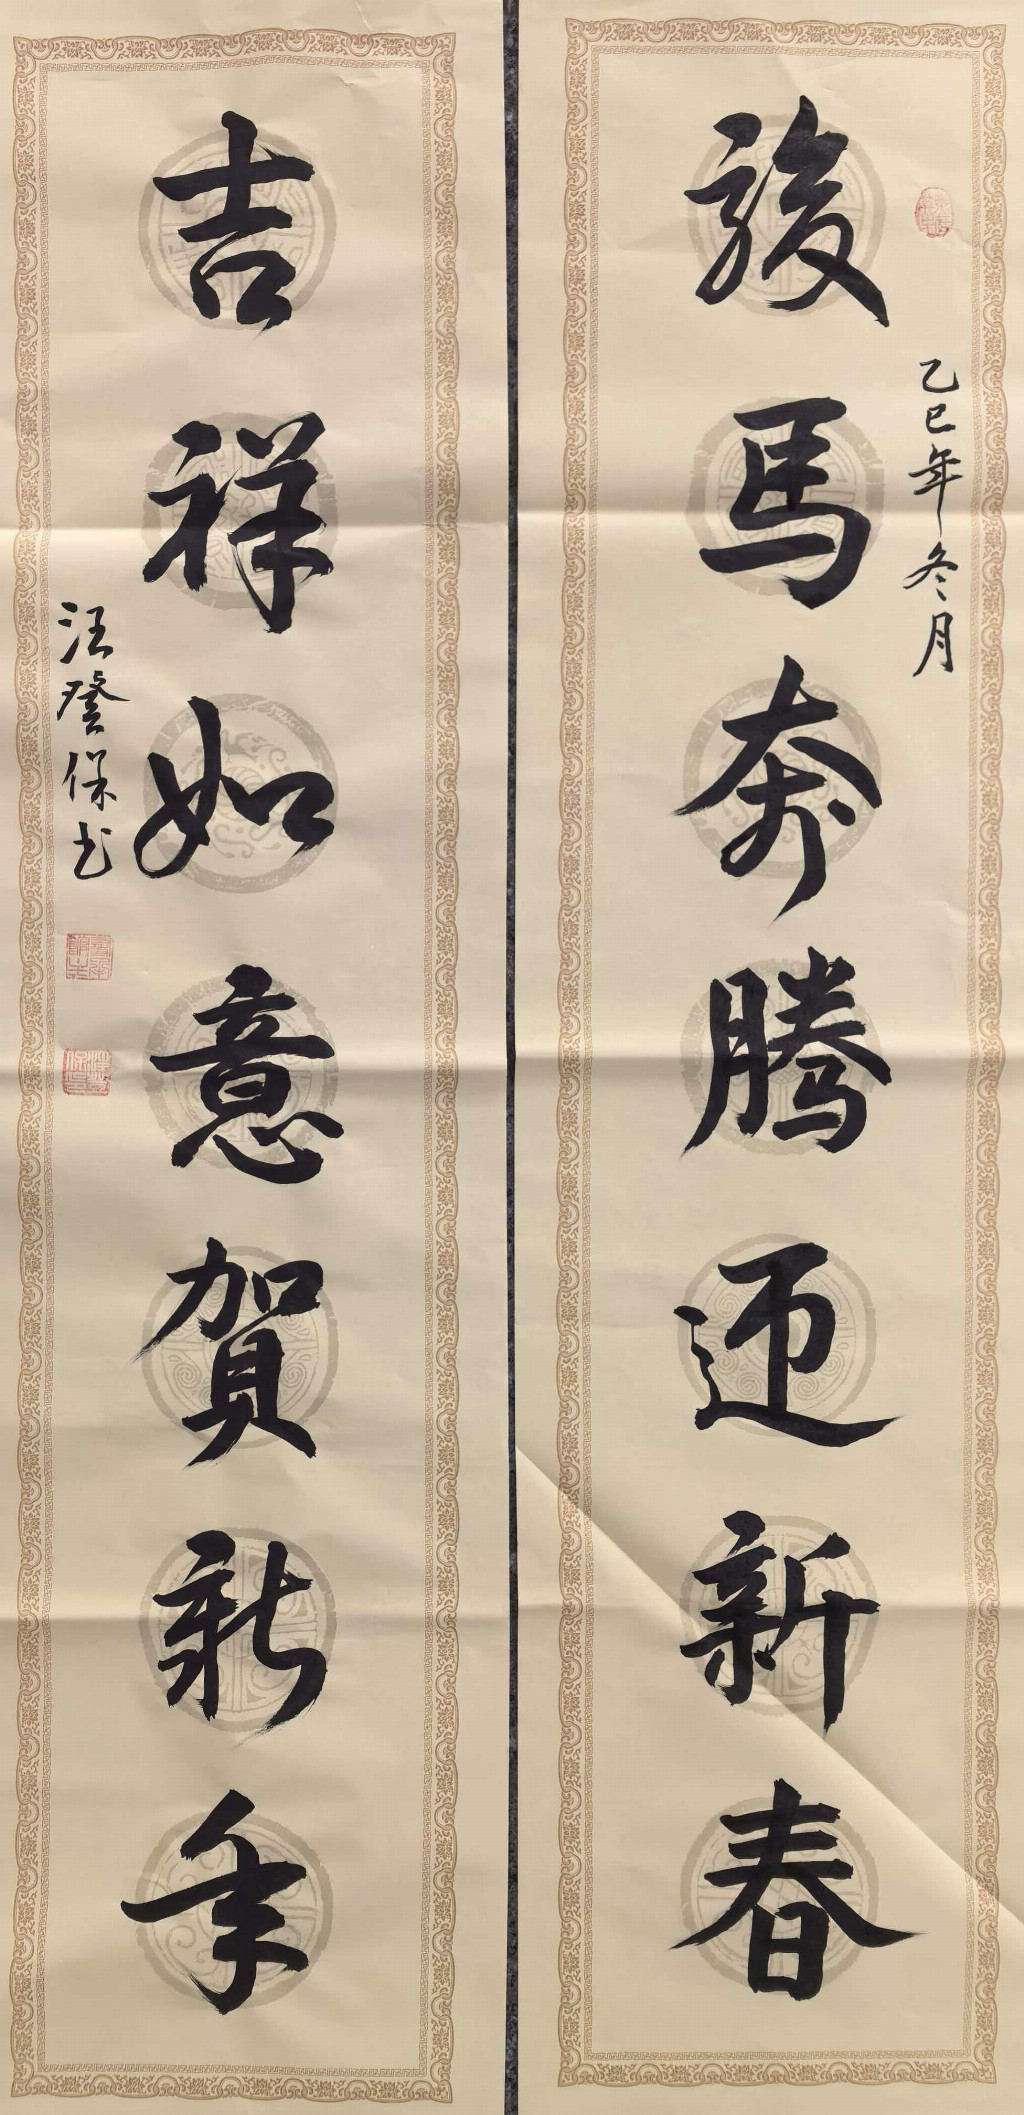 乙巳年冬月
骏马奔腾迎新春
吉祥如意贺新年
汪登保书